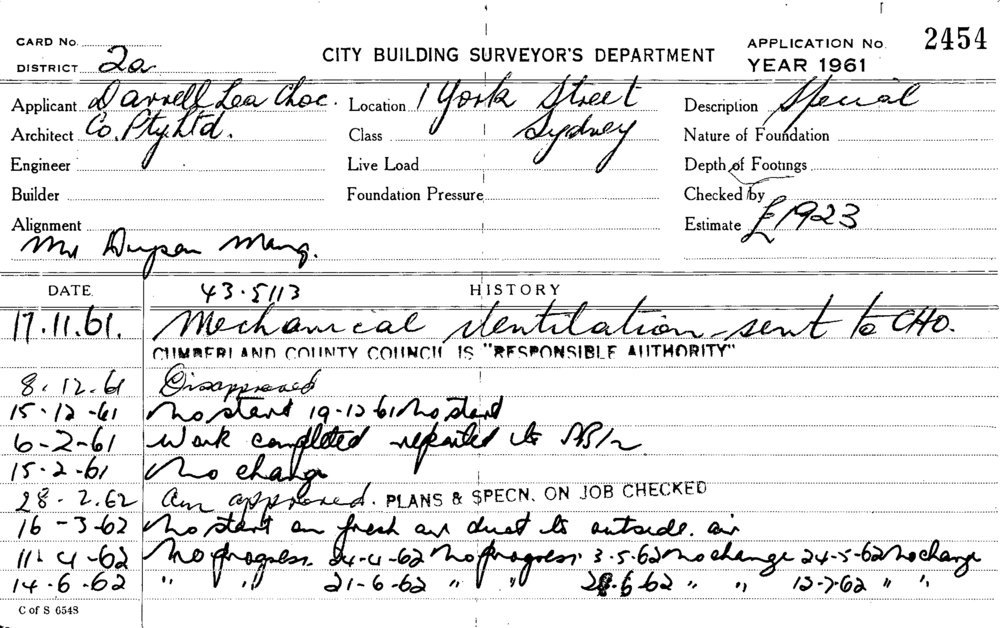 CARD No.
DISTRICT 2a
CITY BUILDING SURVEYOR'S DEPARTMENT
APPLICATION No. 2454
YEAR 1961
Applicant Darrell Lea Choc. Location 1 York Street Description Special
Architect Co. Pty. Ltd. Class Sydney Nature of Foundation
Engineer Live Load Depth of Footings
Builder Foundation Pressure Checked by
Alignment Estimate £1923
Mr
DATE 43.5113 HISTORY
17.11.61. Mechanical Ventilation sent to CHO.
CUMBERLAND COUNTY COUNCIL IS "RESPONSIBLE AUTHORITY"
8.12.61 Disapproved
15-12-61 No start 19-12-61 No start
6-2-61 Work completed reported to
15-2-61 No change
28.2.62 approved. PLANS & SPECN. ON JOB CHECKED
16-3-62 No start on fresh air duct to outside air
11-4-62 No progress. 24-4-62 No progress. 3-5-62 No change 24-5-62 No change
14-6-62 " " 21-6-62 " " 28-6-62 " " 12-7-62 " "
C of S 6548